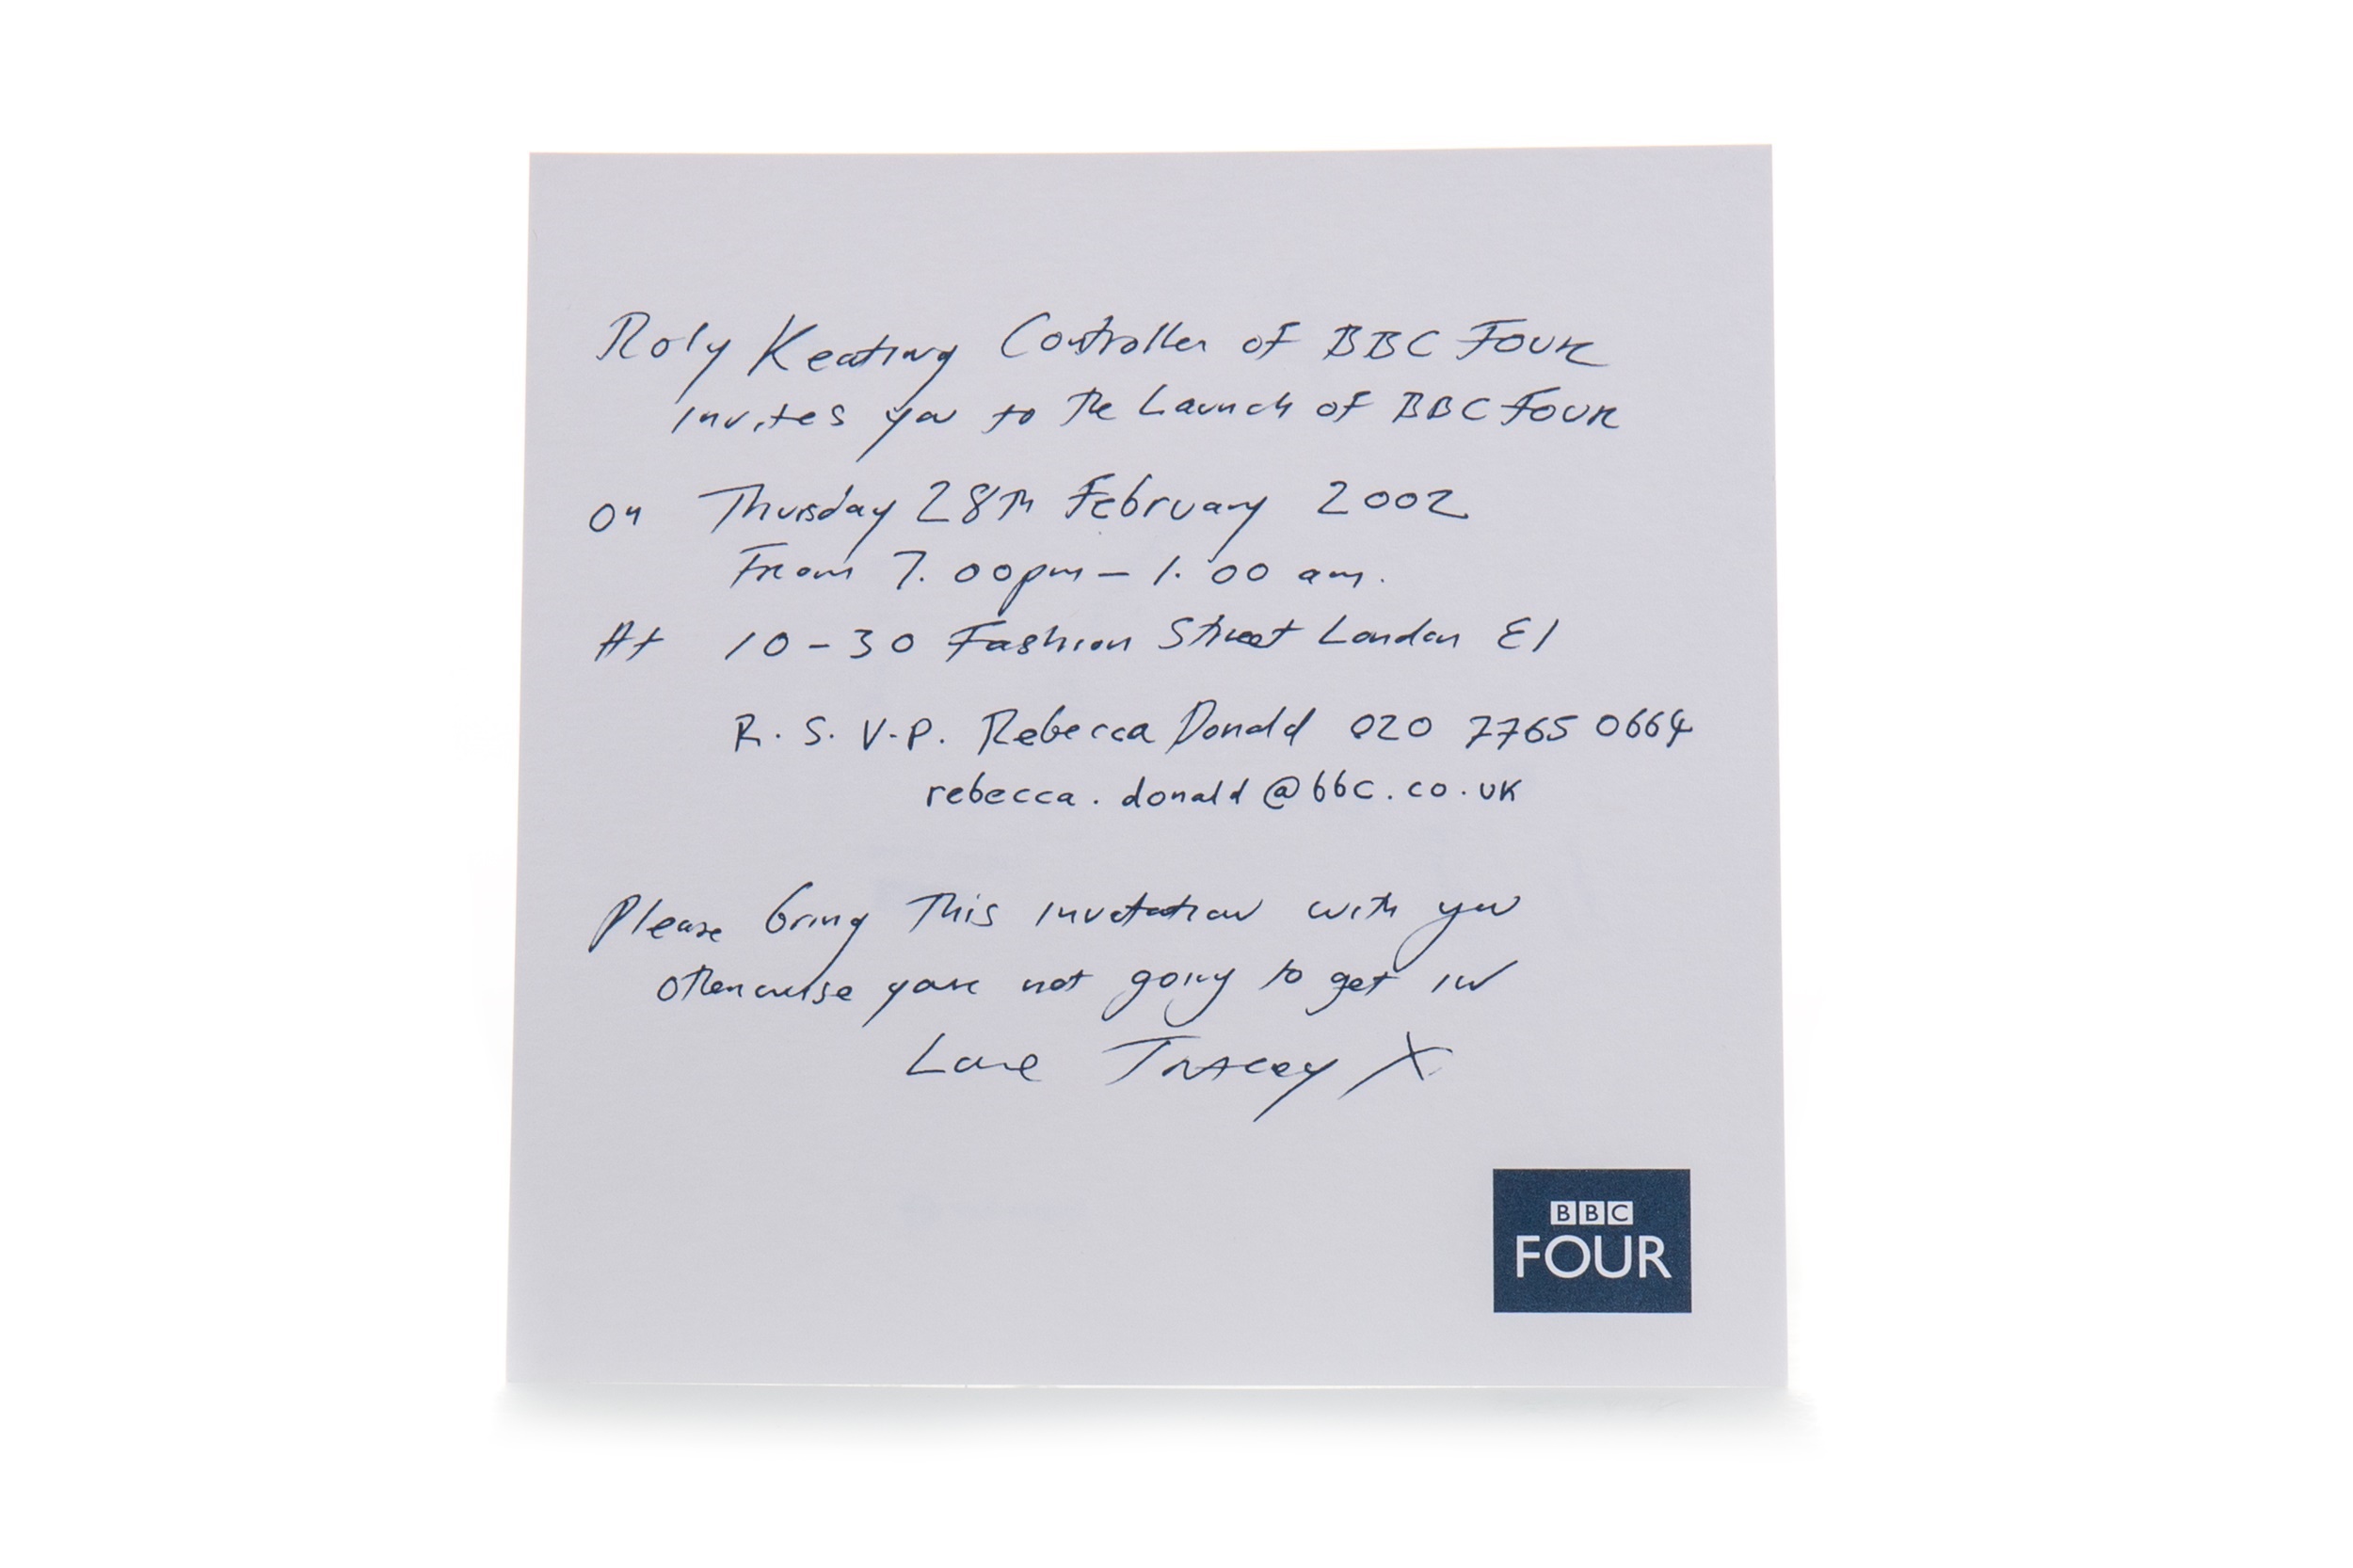 Roly Keating Controller of BBC Four
Invites you to the Launch of BBC Four
On Thursday 28th February 2002
From 7.00pm – 1.00 am.
At 10 – 30 Fashion Street London E1
R. S. V. P. Rebecca Donald 020 7765 0664
rebecca.donald@bbc.co.uk
Please bring This invitation with you
otherwise your not going to get in
Love Tracey X
BBC
FOUR